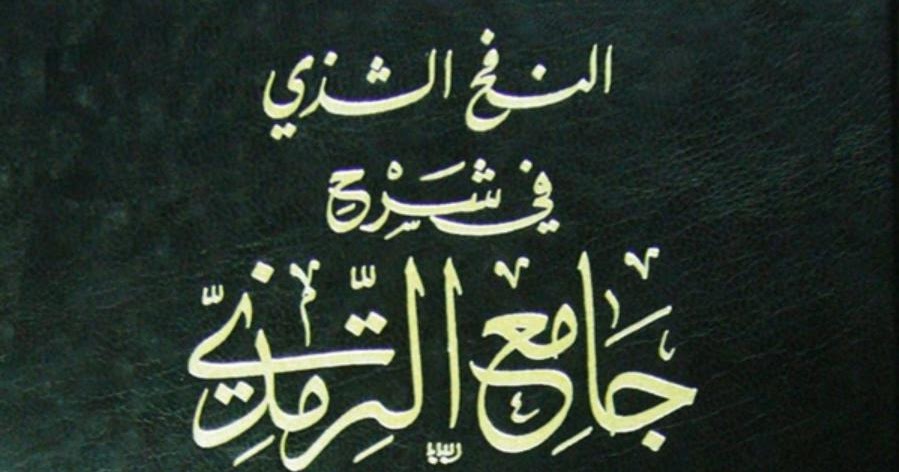 النفح الشذي
في شَرْح
جَامِع التِّرمِذِيّ